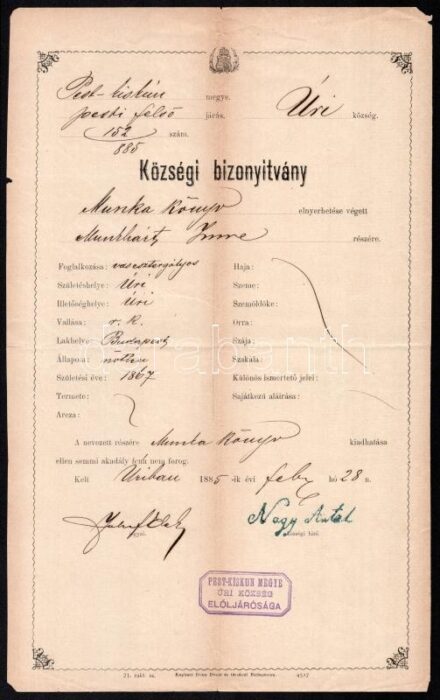 Pest-kiskún megye.
pesti felső járás. Úri község.
152/885 szám.
Községi bizonyitvány
Munka könyv elnyerhetése végett
Munkhárt Imre részére.
Foglalkozása: vasesztergályos Haja:
Születéshelye: Úri Szeme:
Illetőséghelye: Úri Szemöldöke:
Vallása: r. k. Orra:
Lakhelye: Budapest Szája:
Állapota: nőtlen Szakala:
Születési éve: 1867 Különös ismertető jelei:
Termete: Sajátkezű aláirása:
Arcza:
A nevezett részére Munka Könyv kiadhatása
ellen semmi akadály fenn nem forog.
Kelt Úriban 1885 -ik évi feb. hó 28 n.
Nagy Antal
jegyző. községi biró.
PEST-KISKUN MEGYE
ÚRI KÖZSÉG
ELŐLJÁRÓSÁGA
21. rakt. sz.
darabanth